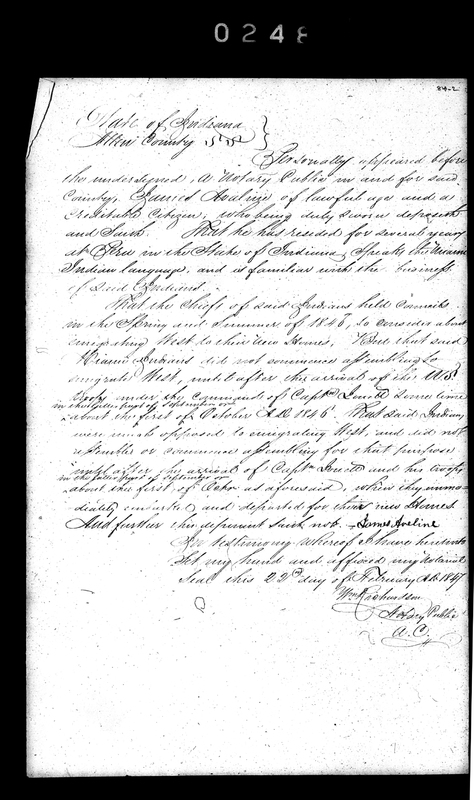 0248
84-2
State of Indiana
Allen County ss
Personally appeared before
the undersigned, a Notary Public in and for said
County, James Avaline of lawful age and a
Creditable Citizen, who being duly sworn deposeth
and saith. That he had resided for several years
at Peru in the State of Indiana, Speaks the Miami
Indian language, and is familiar with the business
of said Indians.
That the Chiefs of said Indians held Councils
in the Spring and Summer of 1846, to consider about
emigrating West to their new Homes, But that said
Miami Indians did not commence assembling to
emigrate West, until after the arrival of the U.S.
Troops under the command of Capt. some time
in the latter part of September or
about the first of October A.D. 1846. That said Indians
were much opposed to emigrating West, and did not
assemble or commence assembling for that purpose
until after the arrival of Capt. and his troops
in the latter part of September or
about the first of Octr as aforesaid, when they imme-
diately and departed for their new Homes
And further this deponent saith not. James Aveline
In testimony whereof I have hereunto
set my hand and affixed my notarial
Seal this 22d day of February A.D. 1847
Wm Richardson
Notary Public
A.C.